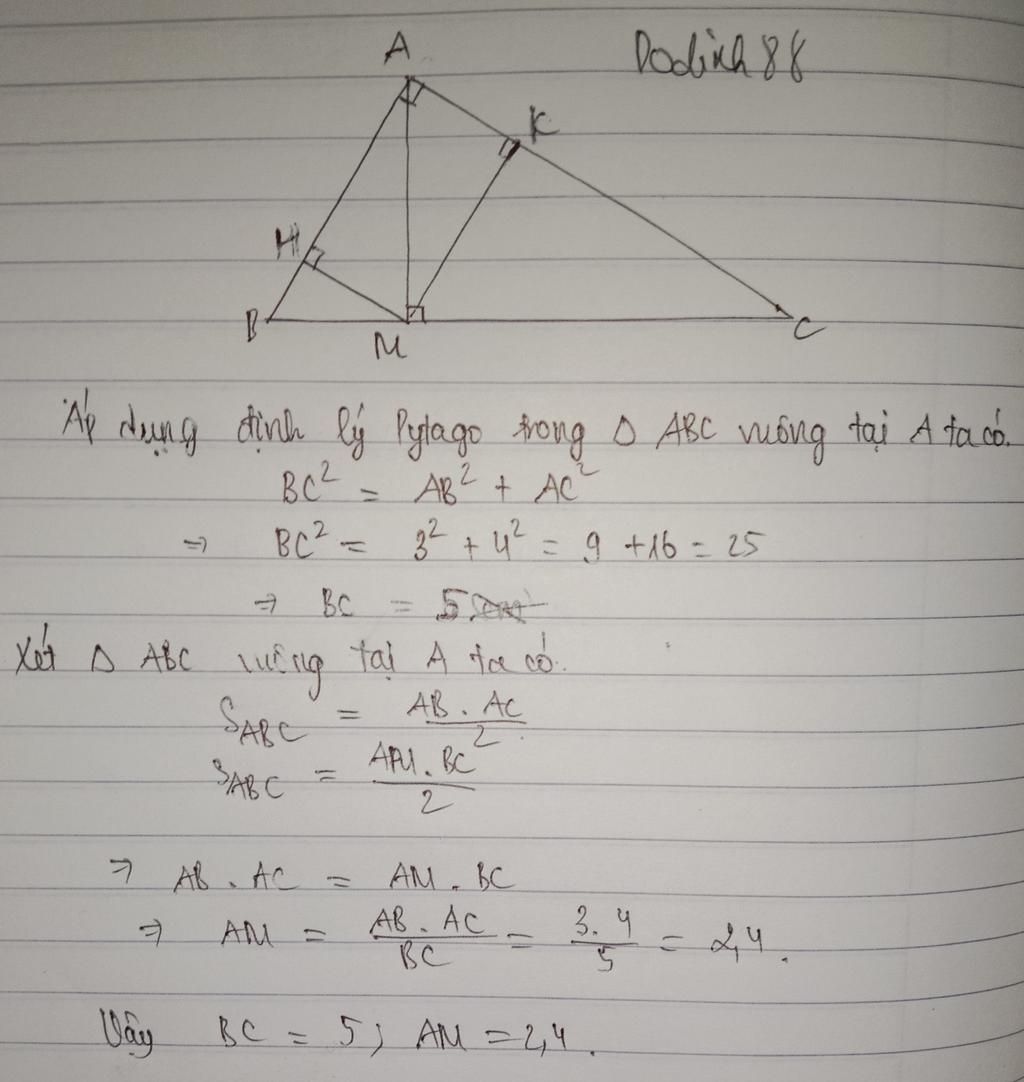 Dodinh88
A
K
H
B
M
C
Áp dụng định lý Pytago trong Δ ABC vuông tại A ta có.
BC² = AB² + AC²
⇒ BC² = 3² + 4² = 9 + 16 = 25
⇒ BC = 5
Xét Δ ABC vuông tại A ta có.
S_ABC = AB . AC / 2
S_ABC = AM . BC / 2
⇒ AB . AC = AM . BC
⇒ AM = AB . AC / BC = 3 . 4 / 5 = 2,4 .
Vậy BC = 5 ; AM = 2,4 .